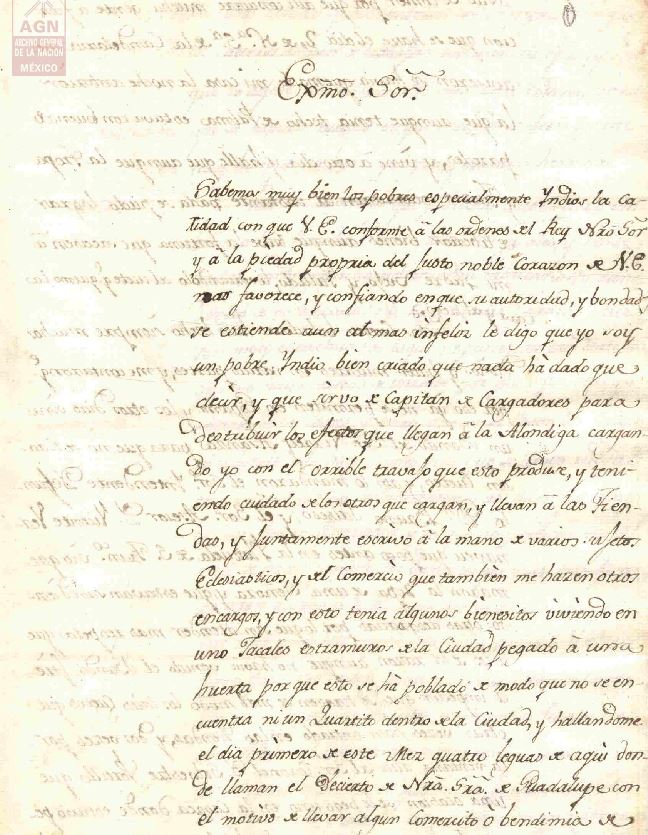 AGN
ARCHIVO GENERAL
DE LA NACIÓN
MÉXICO
Exmo. Sor.
Sabemos muy bien los pobres especialmente Yndios la ca-
lidad con que V.E. conforme â las ordenes del Rey Nro Sor
y â la piedad propria del justo noble Corazon de V.E.
nos favorece, y confiando en que su autoridad, y bondad
se estiende aun al mas infeliz le digo que yo soy
un pobre Yndio bien criado que nada hà dado que
decir, y que sirvo de Capitan de Cargadores para
destribuir los efectos que llegan â la Alondiga cargan-
do yo con el orrible travajo que esto produse, y teni-
endo cuidado de los otros que cargan, y llevan â las Tien-
das, y juntamente escrivo â la mano de varios sujetos
Eclesiasticos, y del Comercio que tambien me hazen otros
encargos, y con esto tenia algunos bienesitos viviendo en
uno Jacales extramuros de la Ciudad pegado â una
huerta por que esto se hà poblado de modo que no se en
cuentra ni un Quartito dentro de la Ciudad, y hallandome
el dia primero de este Mez quatro leguas de aqui don-
de llaman el Decierto de Nrâ. Srâ. de Guadalupe con
el motivo de llevar algun comercito o bendimia de